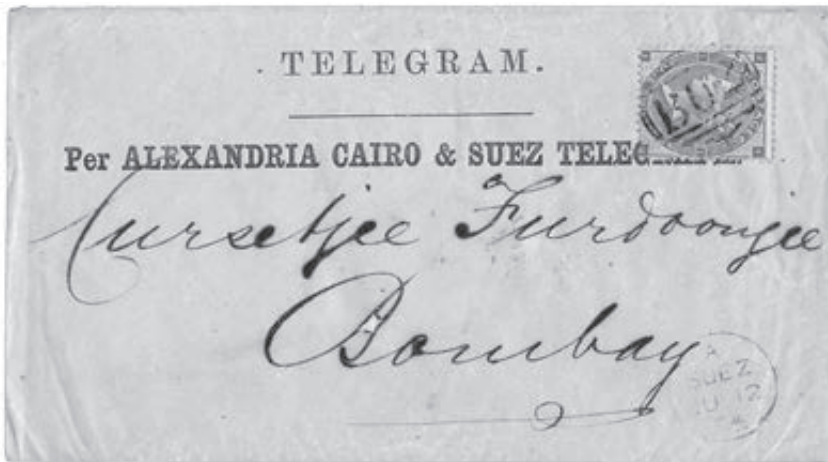 TELEGRAM.
Per ALEXANDRIA CAIRO & SUEZ
Cursetjee Furdoonjee
Bombay
SUEZ
12